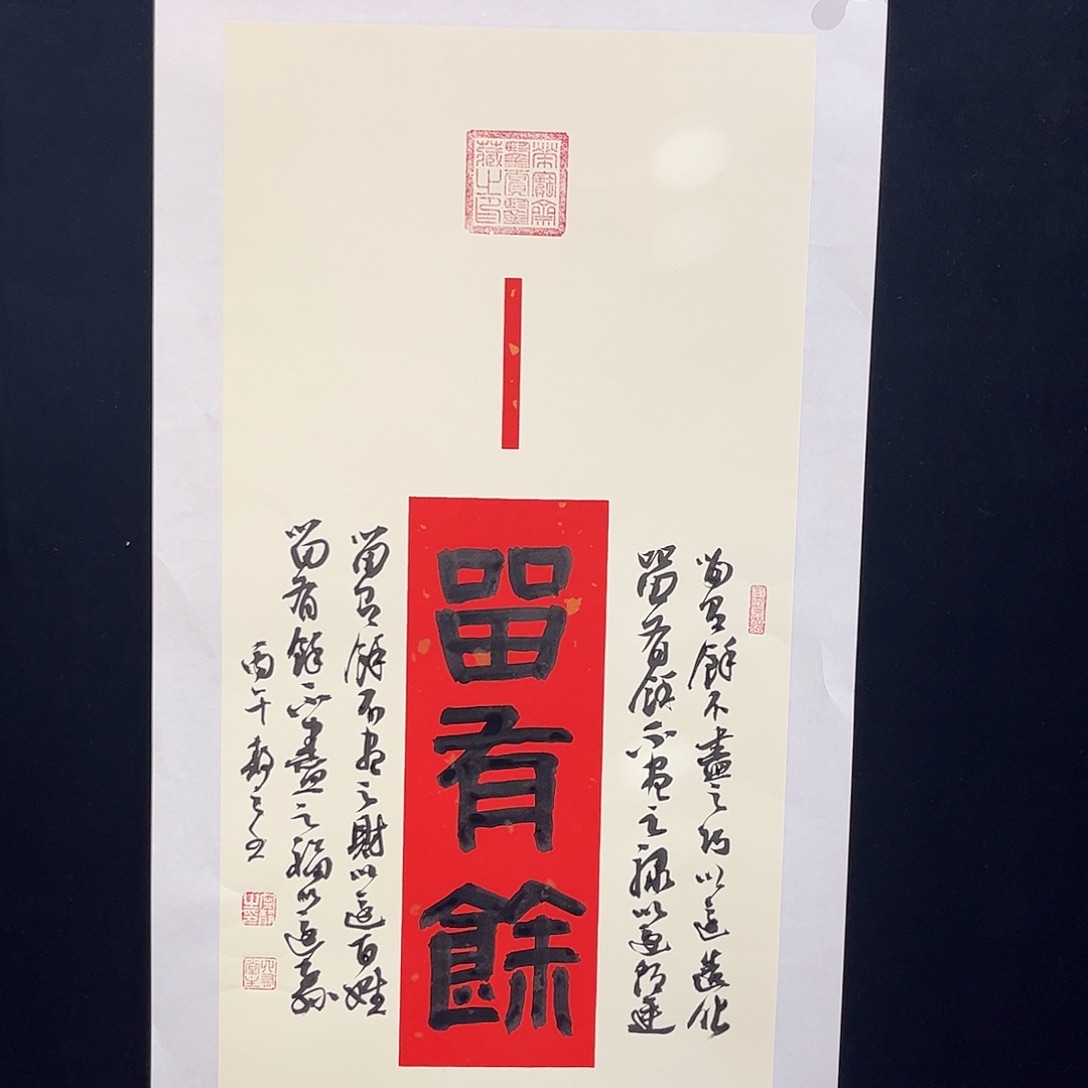 留有餘不盡之巧以還造化
留有餘不盡之祿以還朝廷
畱有餘
留有餘不盡之財以還百姓
留有餘不盡之福以還子孫
丙午